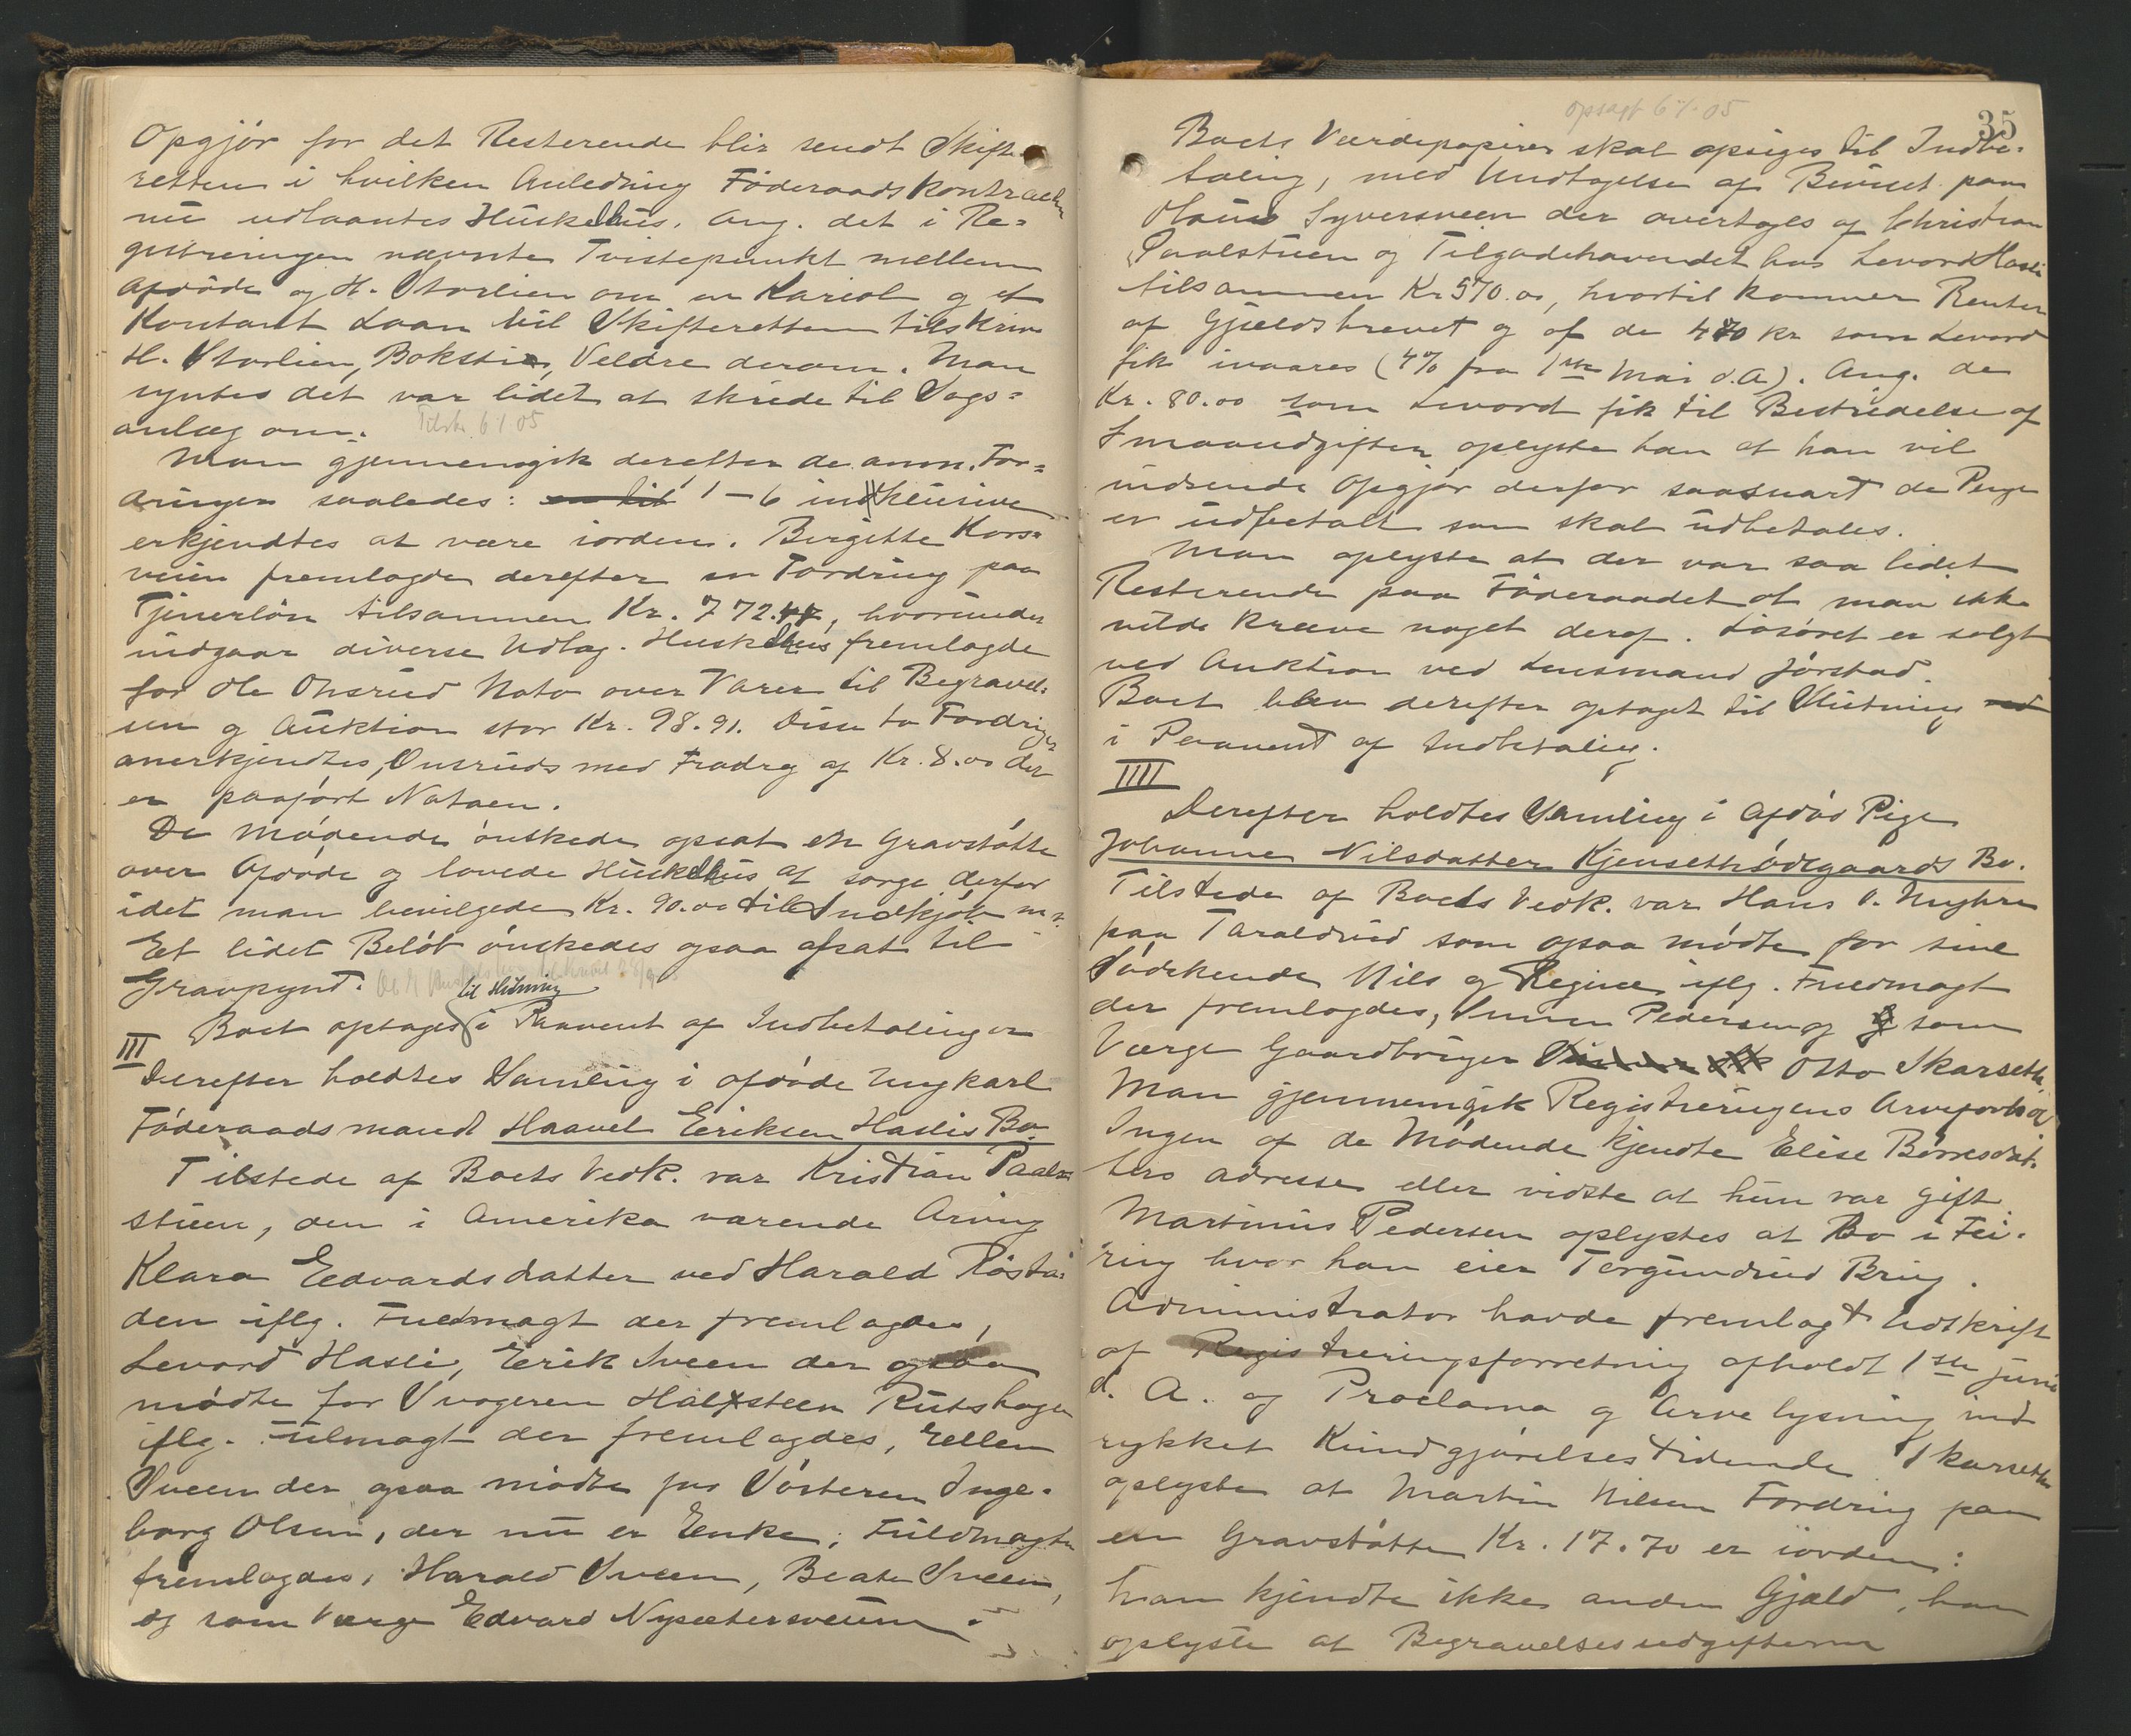 Opgjør for det Resterende blir sendt Skifte-
retten i hvilken Anledning Föderaadskontrakten
nu udlaantes Huskelhus. Ang. det i Re=
gistreringen nævnte Tvistepunkt mellem
Afdöde og H. Storlien om en Kariol og et
Kontant Laan vil Skifteretten tilskrive
H. Storlien, Bakstie, Veldre derom. Man
syntes det var lidet at skride til Sags=
anlæg om. Tilskr. 6/1.05
Man gjennemgik derefter de anm. For=
dringer saaledes: en til 1-6 indklusive
erkjendtes at være iorden. Birgitte Kors=
veien fremlagde derefter en Fordring paa
Tjenerlön tilsammen Kr. 772.47, hvorunder
indgaar diverse Udlæg. Huskelhus fremlagde
for Ole Onsrud Nota over Varer til Begravel=
sen og Auktion stor Kr. 98.91. Disse to Fordringer
anerkjendtes, Onsruds med Fradrag af Kr. 8.00 der
er paaført Notaen.
De Mødende önskede opsat en Gravstøtte
over Afdöde og lovede Huskelhus at sorge derfor
idet man bevilgede Kr. 90.00 til Indkjöb m.v.
Eet lidet Belöb önskedes ogsaa afsat til
Gravpynt.
til Slutning
Boet optages i Paavent af Indbetalinger
III
Derefter holdtes Samling i afdöde Ungkarl
Föderaadsmand Haavel Eriksen Haslis Bo.
Tilstede af Boets Vedk. var Kristian Paals=
stuen, den i Amerika værende Arving
Klara Edvardsdatter ved Harald Røstø=
den iflg. Fuldmagt der fremlagdes,
Levord Hasli, Erik Sveen der ogsaa
mødte for Svogeren Halfsteen Rutshagen
iflg. Fulmagt der fremlagdes, Ellen
Sveen der ogsaa mödte for Sösteren Inge=
borg Olsen, der nu er Enke; Fuldmagten
fremlagdes, Harald Sveen, Beate Sveen,
og som Værge Edvard Nysætersveen.
opsagt 6/1.05
35
Boets Værdipapirer skal opsiges til Indbe-
taling, med Undtagelse af Beviset paa
Olaus Syversveen der overtages af Christian
Paalstuen og Tilgodehavendet hos Levord Hasli
tilsammen Kr 570.00, hvortil kommer Renter
af Gjeldsbrevet og af de 470 kr som Levord
fik ivaares (4% fra 1ste Mai d.A). Ang. de
Kr. 80.00 som Levord fik til Bestridelse af
Smaaudgifter oplyste han at han vil
indsende Opgjör derfor saasnart de Penge
er udbetalt som skal udbetales.
Man oplyste at der var saa lidet
Resterende paa Föderaadet at man ikke
vilde kræve noget deraf. Løsøret er solgt
ved Auktion ved Lensmand Jörstad.
Boet blev derefter optaget til Slutning ved
i Paavent af Indbetaling.
IIII
Derefter holdtes Samling i Afdöd Pige
Johanne Nilsdatter Kjensethødegaards Bo.
Tilstede af Boets Vedk. var Hans O. Mughre
paa Taraldrud som ogsaa mødte for sine
Södskende Nils og Regine iflg. Fuldmagt
der fremlagdes, Simen Pedersen og som
Værge Gaardbruger Otto Skarseth.
Man gjennemgik Registreringens Arveforhold
Ingen af de Mødende kjendte Elise Børresdat-
ters adresse eller vidste at hun var gift.
Martinus Pedersen oplystes at Bo i Fei-
ring hvor han eier Torgundrud Brug.
Administrator havde fremlagt Udskrift
af Registreringsforretning afholdt 1ste juni
d. A. og Proclama og Arvelysning ind
rykket Kundgjørelsestidende Skarseth
oplyste at Martin Nilsen Fordring paa
en Gravstøtte Kr. 17.70 er iorden:
han kjendte ikke anden Gjæld, han
oplyste at Begravelsesudgifterne